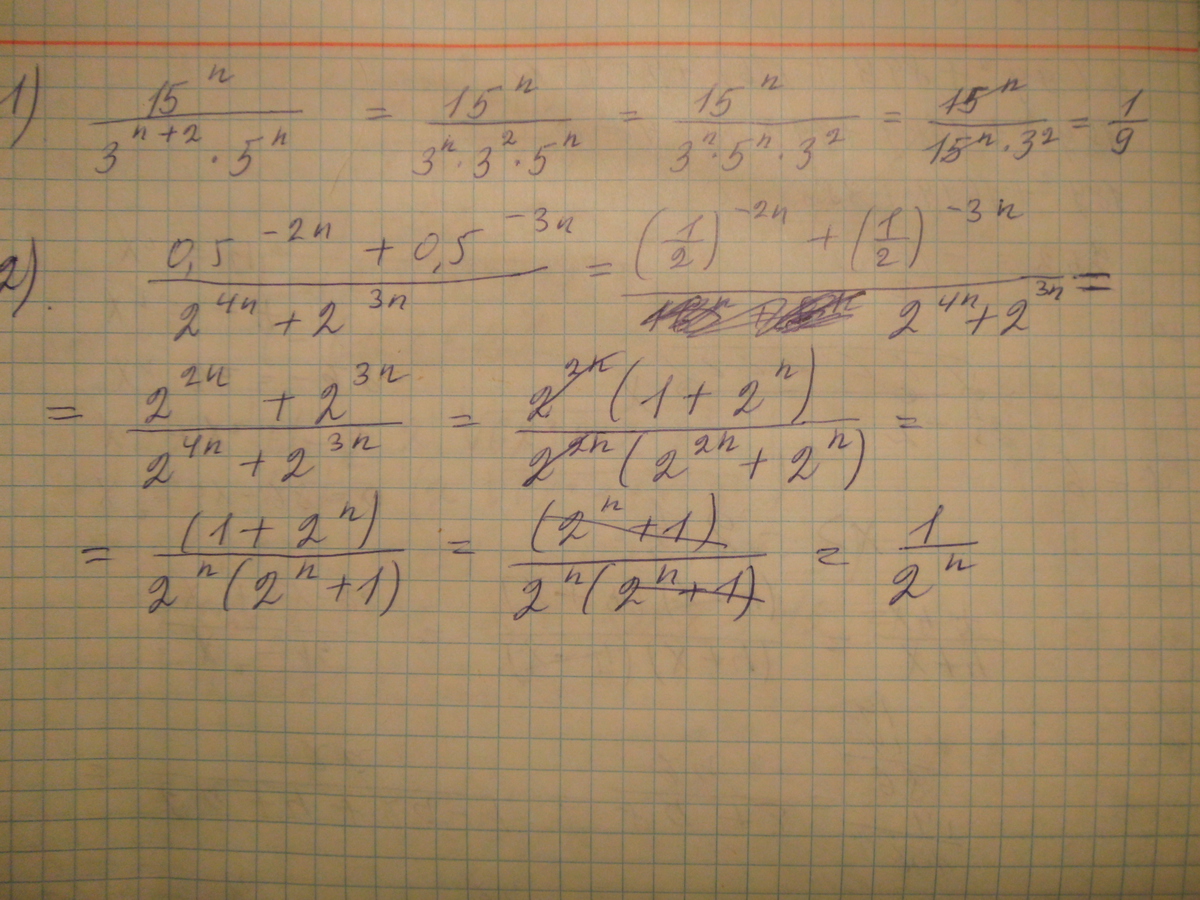 1). 15^n / (3^(n+2) · 5^n) = 15^n / (3^n · 3^2 · 5^n) = 15^n / (3^n · 5^n · 3^2) = 15^n / (15^n · 3^2) = 1/9
2). (0,5^(-2n) + 0,5^(-3n)) / (2^(4n) + 2^(3n)) = ((1/2)^(-2n) + (1/2)^(-3n)) / (2^(4n) + 2^(3n)) =
= (2^(2n) + 2^(3n)) / (2^(4n) + 2^(3n)) = 2^(2n) (1 + 2^n) / (2^(2n) (2^(2n) + 2^n)) =
= (1 + 2^n) / (2^n (2^n + 1)) = (2^n + 1) / (2^n (2^n + 1)) = 1 / 2^n